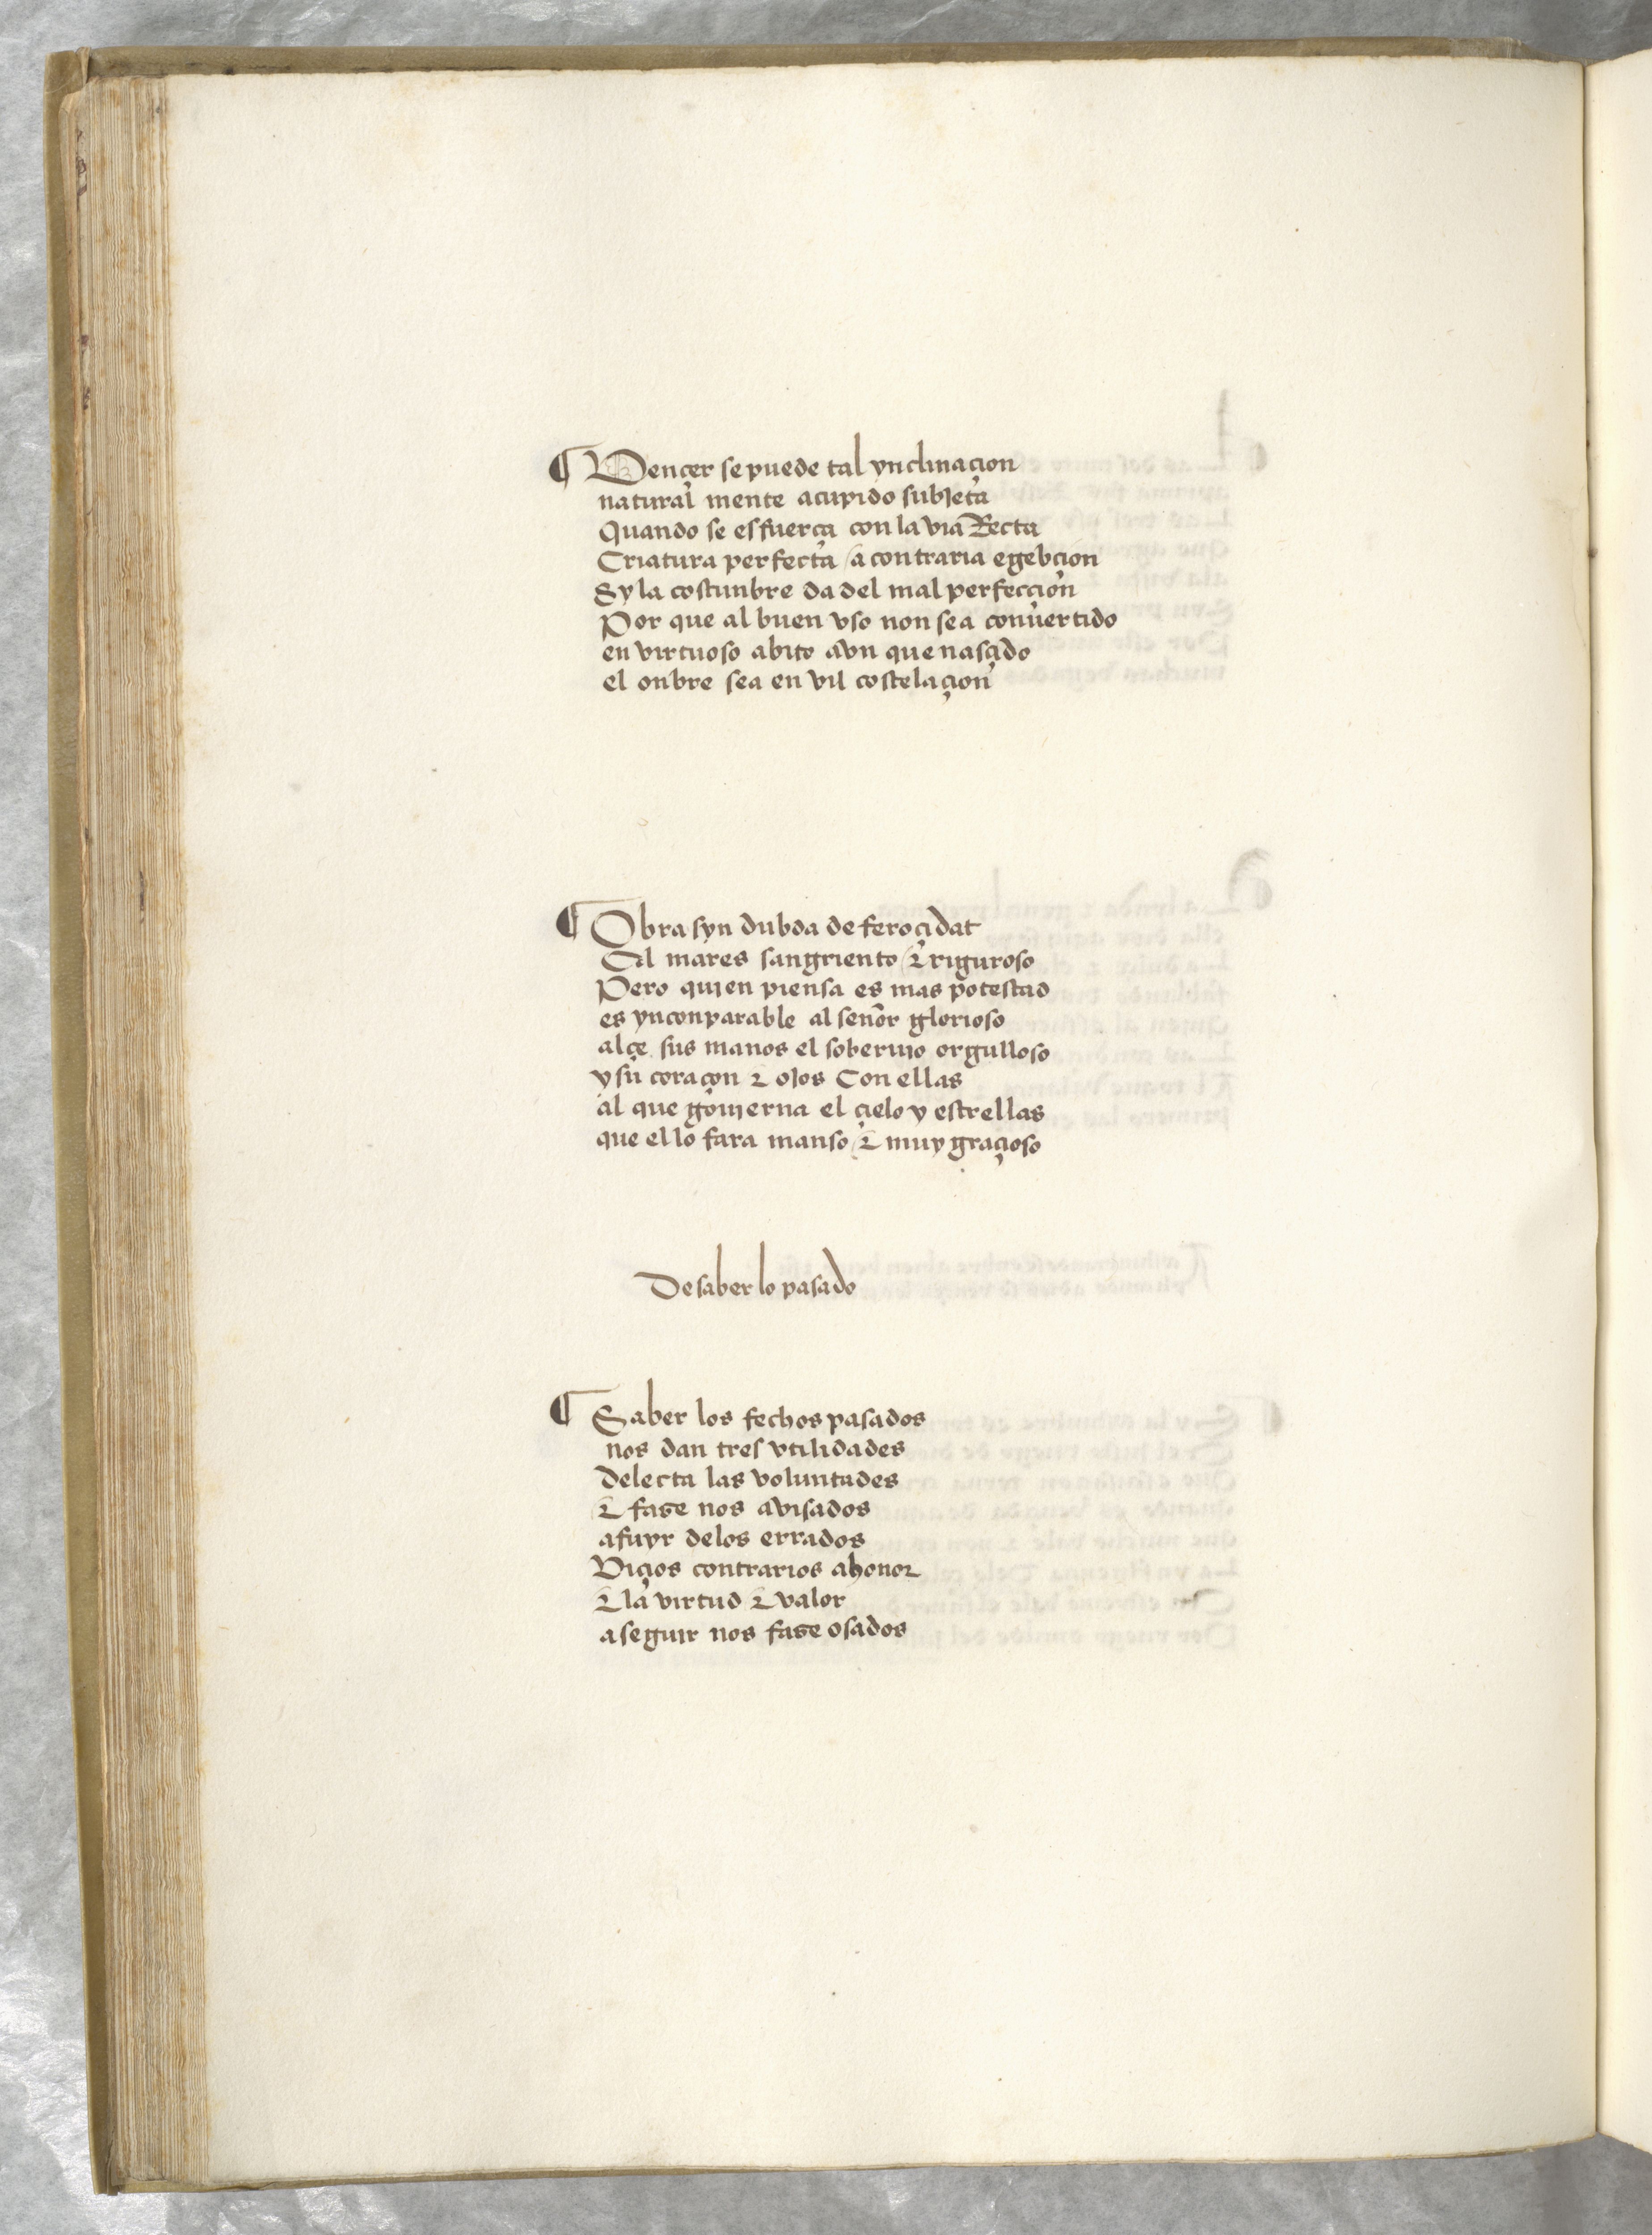 ¶ Vençer se puede tal ynclinaçion
natural mente acupido subjeta
Quando se esfuerça con la via Recta
Criatura perfecta / a contraria egebçion
Sy la costunbre da del mal perfecçion
Por que al buen vso non sea conuertido
en virtuoso abito avn que nasçido
el onbre sea en vil costelaçion
¶ Obra syn dubda de feroçidat
El mares sangriento / τ riguroso
Pero quien piensa es mas potestad
es ynconparable al señor glorioso
alçe sus manos el soberuio orgulloso
y su coraçon τ ojos Con ellas
al que gouierna el çielo y estrellas
que el lo fara manso / τ muy graçioso
De saber lo pasado
¶ Saber los fechos pasados
nos dan tres vtilidades
delecta las voluntades
τ fase nos avisados
afuyr delos errados
Viçios contrarios ahonor
τ la virtud τ valor
a seguir nos fase osados